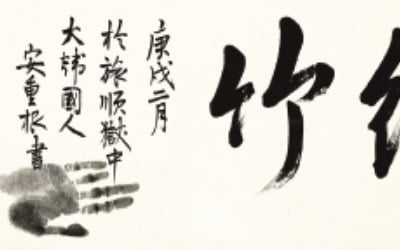 竹
庚戌二月
於旅順獄中
大韓國人
安重根書